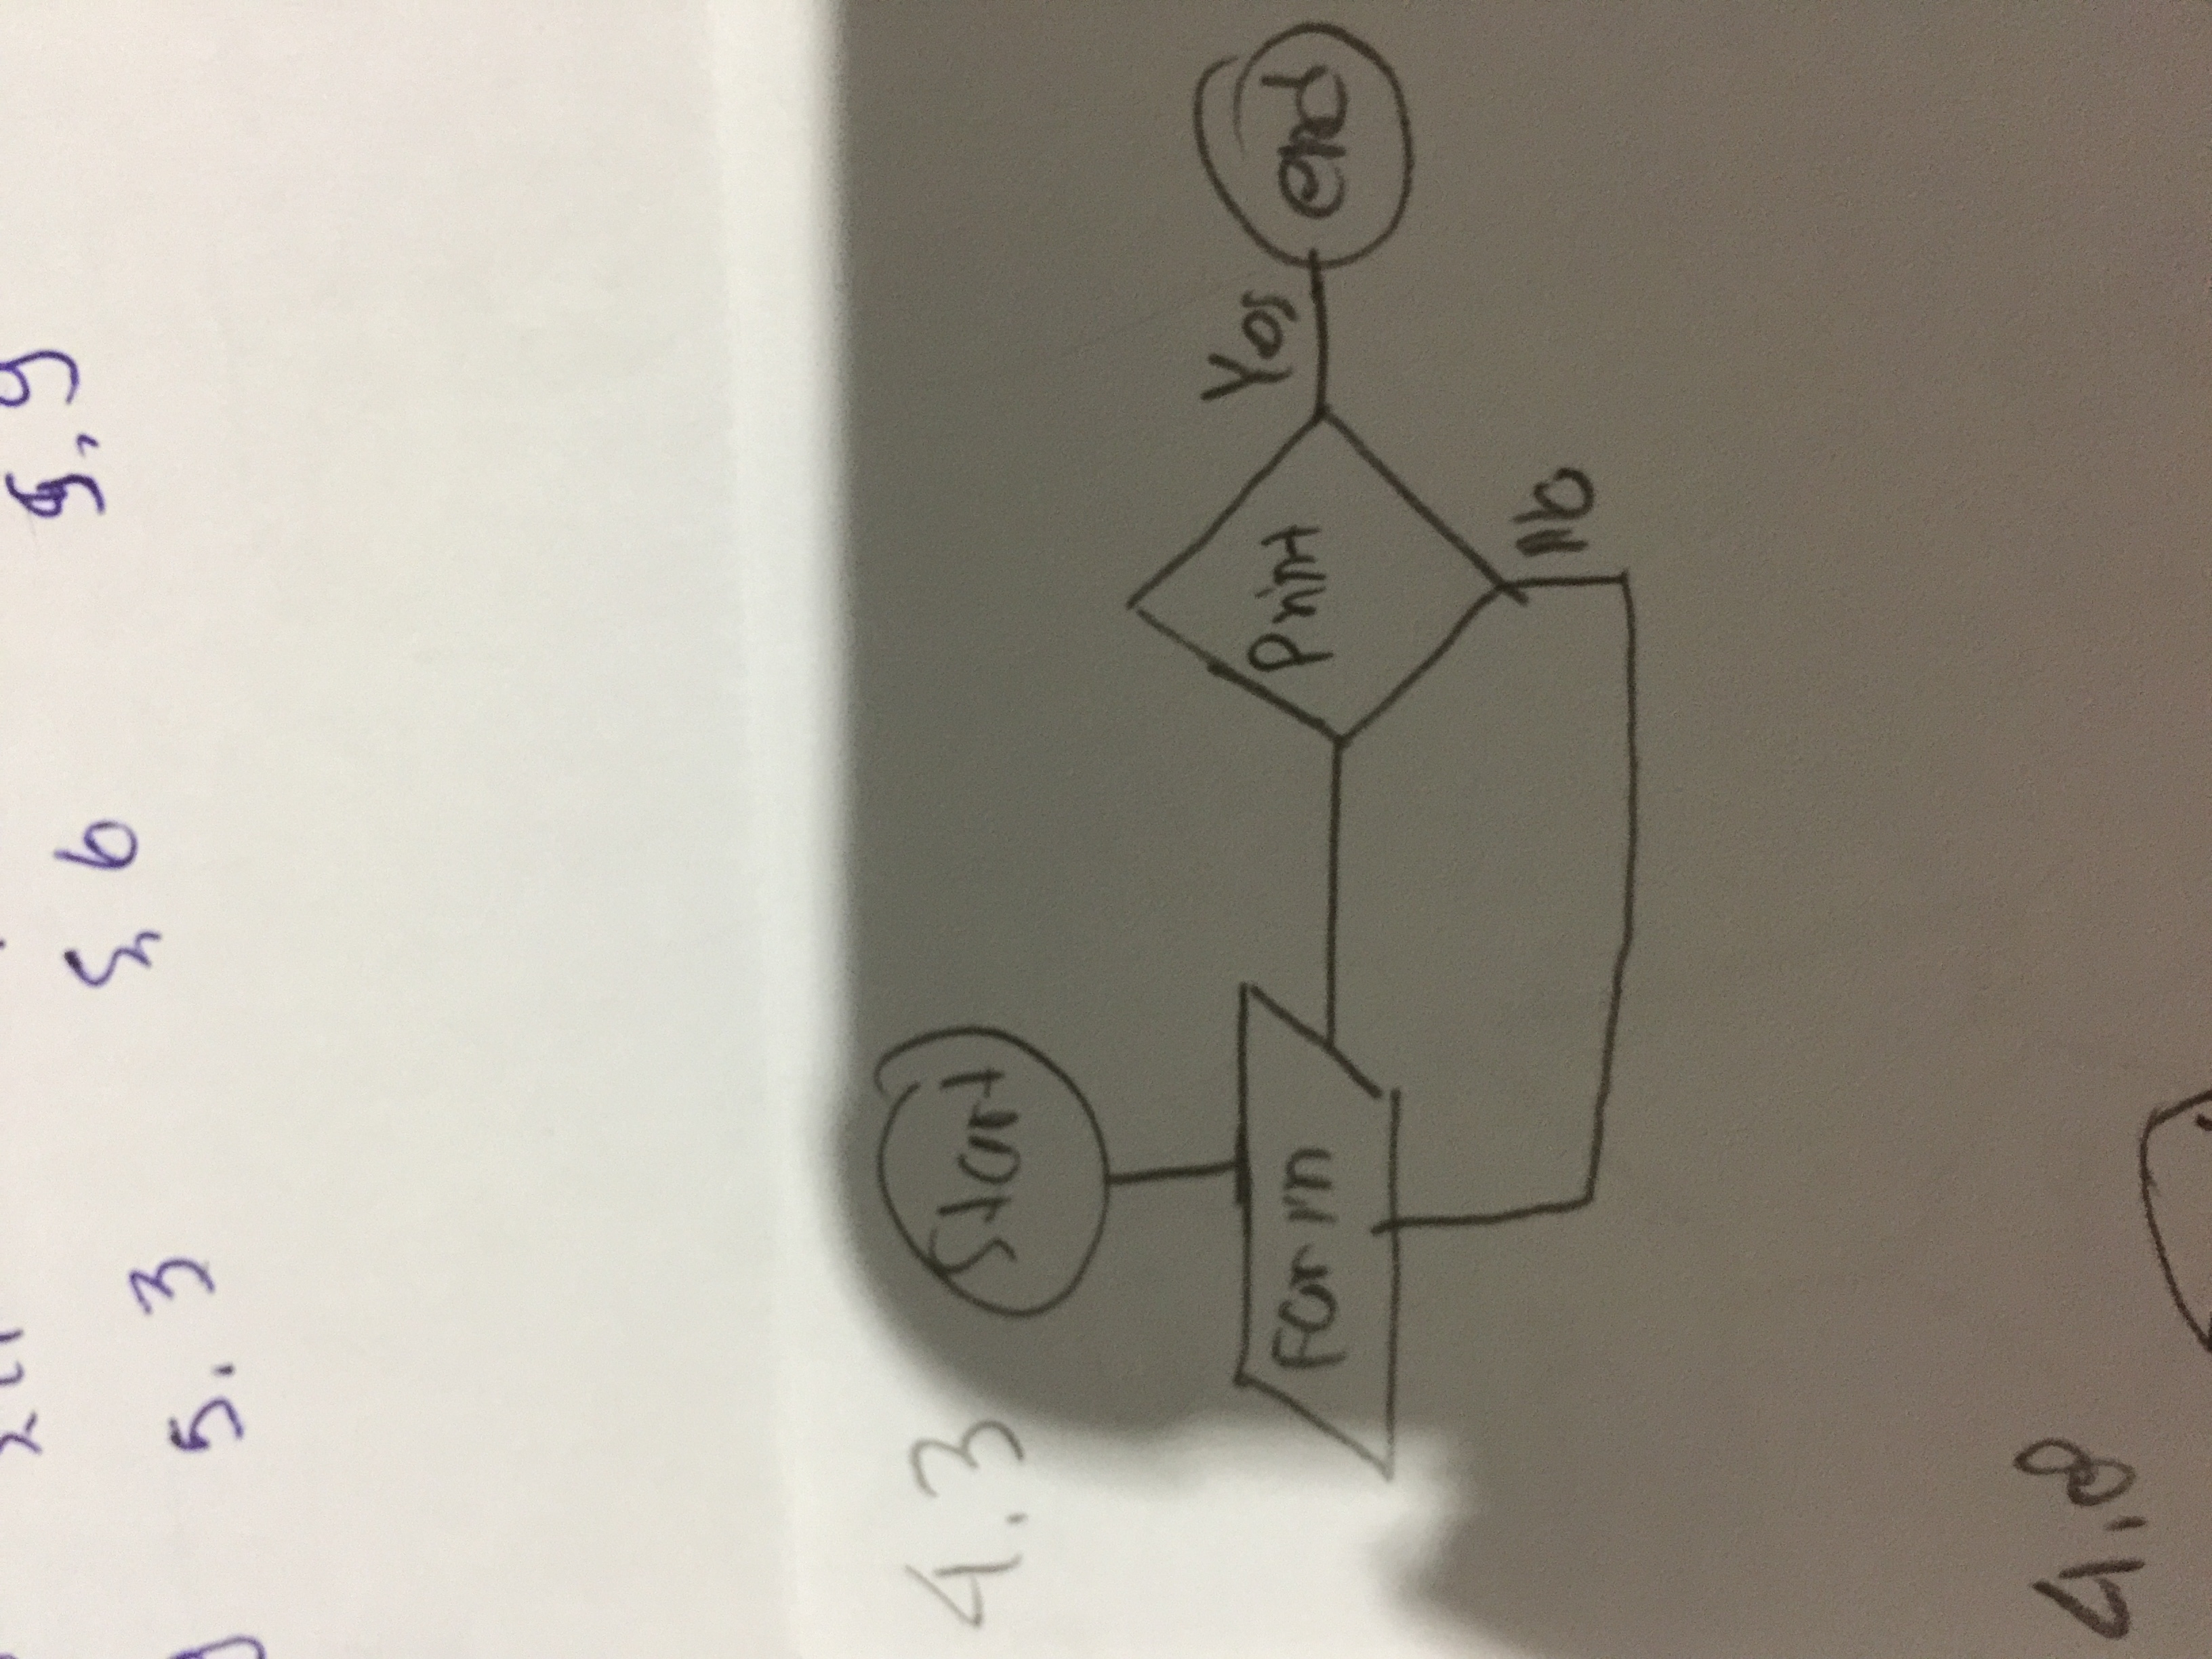 5.3 5, 6 5, 9
4.3 Start
For in Print Yos end
No
4.8